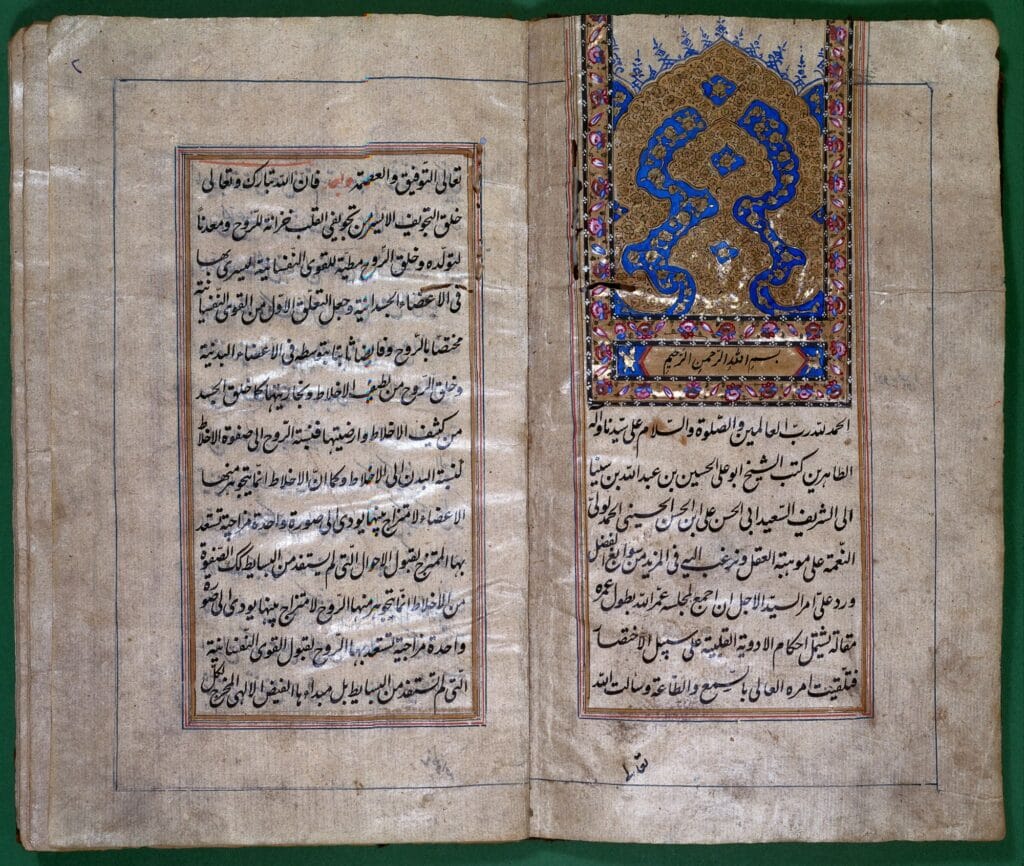 بسم الله الرحمن الرحيم
الحمد لله رب العالمين والصلوة والسلام على سيدنا وآله
الطاهرين كتب الشيخ ابو على الحسين بن عبد الله بن سينا
الى الشريف السعيد ابى الحسن على ابن الحسن الحسينى الحمد لولى
النّعمة على موهبة العقل ونرغب اليه فى المزيد من سوابغ الفضل
ورد علىّ امر السيّد الاجل ان اجمع لمجلسه عمّر الله بطول عمره
مقالة تشتمل احكام الادوية القلبية على سبيل الاختصار
فتلقيت امره العالى بالسّمع والطّاعة وسالت الله
تعالى
٢
تعالى التّوفيق والعصمة وبعد فان الله تبارك وتعالى
خلق التجويف الايسر من تجويفى القلب خزانة للرّوح ومعدنا
لتولّده وخلق الرّوح مطية للقوى النّفسانية ليسرى بها
فى الاعضاء الجسدانية وجعل التعلق الاول من القوى النّفسانية
مختصا بالرّوح وفايضا ثانيا بتوسطه فى الاعضاء البدنية
وخلق الرّوح من لطيف الاخلاط وبخاريتها كما خلق الجسد
من كثيف الاخلاط وارضيتها فنسبة الرّوح الى صفوة الاخلاط
كنسبة البدن الى الاخلاط وكما انّ الاخلاط انّما يتجوهر منها
الاعضاء لامتزاج بينها يودى الى صورة واحدة مزاجية تستعد
بها الممتزج لقبول الاحوال التى لم يستفد من البسايط كك الصّفوة
من الاخلاط انّما يتجوهر منها الرّوح لامتزاج بينها يودى الى صورة
واحدة مزاجية تستعد بها الرّوح لقبول القوى النّفسانية
الّتى لم تستفد من البسايط بل مبداء ها الفيض الالهى المخرج لكلّ